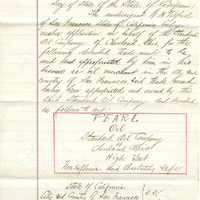 Secy of State of the State of California
The undersigned
of San Francisco State of California
makes application on behalf of the Standard
Oil Company of Cleveland Ohio for the
following described trade mark to be
used and appropriated by them in this
business as oil merchants in the city and
county of San Francisco said trade mark
having been appropriated and owned by the
said Standard Oil Company and described
as follows to wit
PEARL
Oil
Standard Oil Company
Cleveland Ohio
High Test
Non Explosive and Absolutely Safe
State of California
City and County of San Francisco